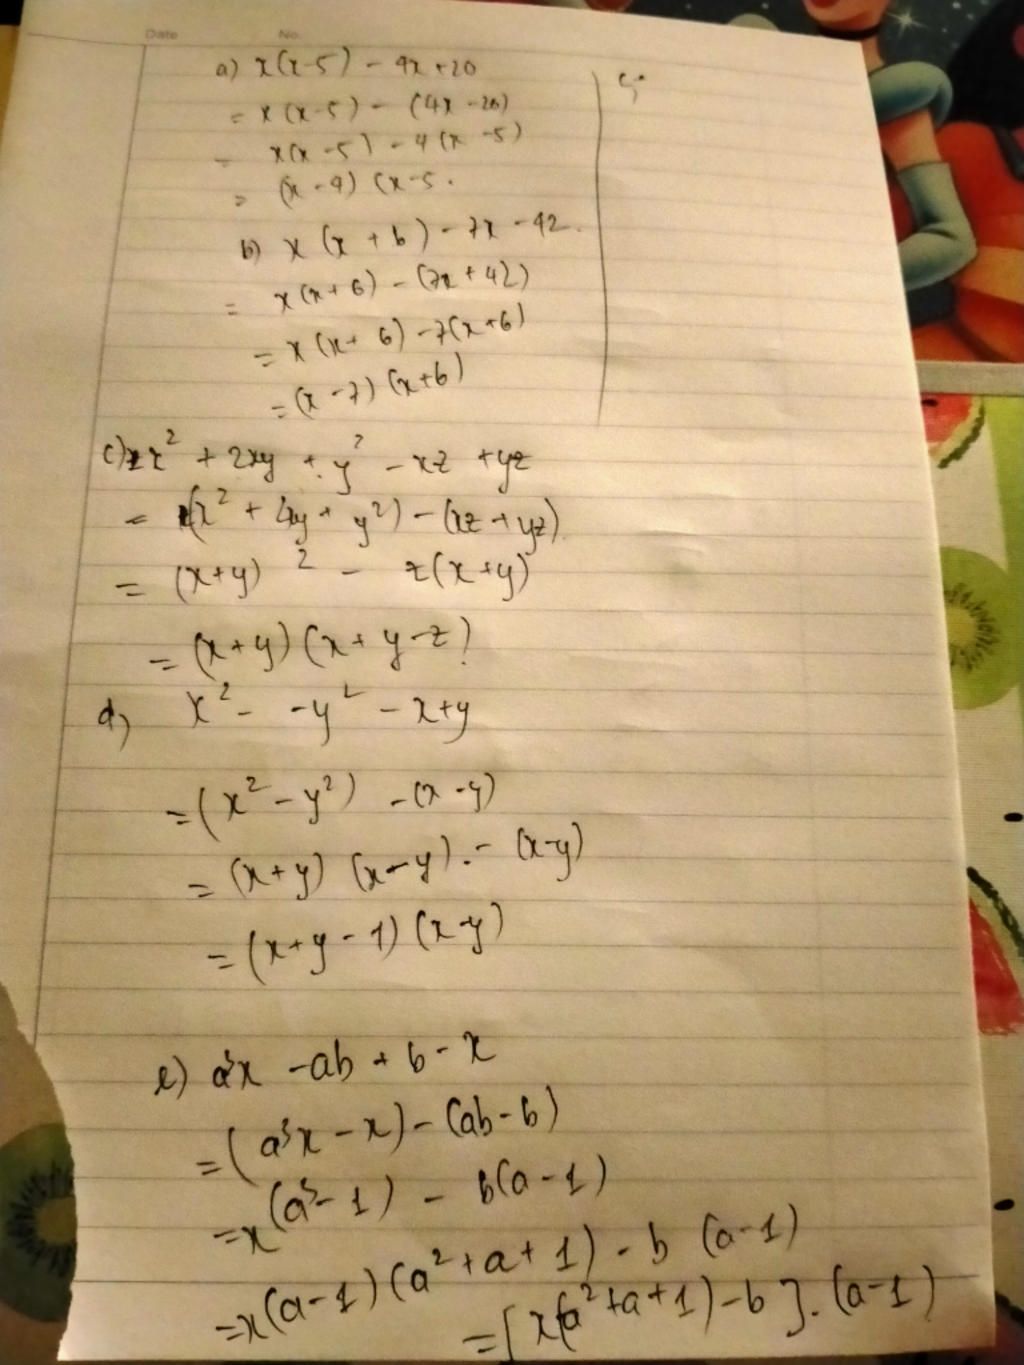 Date No.
a) x(x-5) - 4x+20
= x(x-5) - (4x-20)
= x(x-5) - 4(x-5)
= (x-4)(x-5.
b) x(x+6) - 7x - 42.
= x(x+6) - (7x+42)
= x(x+6) - 7(x+6)
= (x-7)(x+6)
c) x² + 2xy + y² - xz + yz
= (x² + 2xy + y²) - (xz + yz)
= (x+y)² - z(x+y)
= (x+y)(x+y-z)
d) x² - -y² - x+y
= (x² - y²) - (x-y)
= (x+y)(x-y) - (x-y)
= (x+y-1)(x-y)
e) a³x - ab + b - x
= (a³x - x) - (ab - b)
= x(a³-1) - b(a-1)
= x(a-1)(a²+a+1) - b(a-1)
= [x(a²+a+1)-b].(a-1)